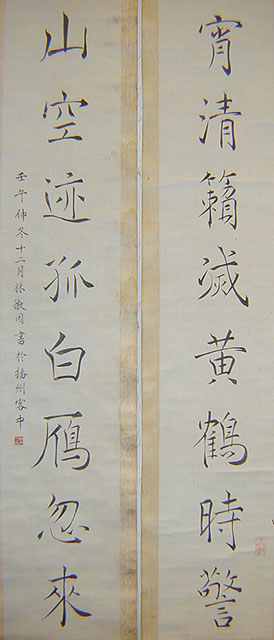 宵清籟滅黄鶴時警
山空迹孤白鴈忽來
壬午仲冬十二月林散周書於播州客中